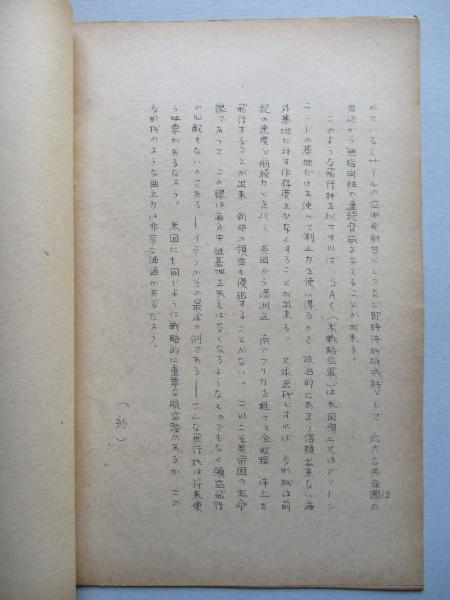 れているミサイルの空中発射台として又は即時作戦哨戒機として 広大な共産圏の
周辺から無指向性の連続脅威を与えることが出来る。
このような飛行機を以てすれば SAC(米戦略空軍)は米国領土又はグリーン
ランドの基地だけを使って制止力を使い得るので 政治的にあまり信頼出来ない海
外基地に対する依存度を少なくすることが出来る。 又旅客機とすれば 多形機は前
記の速度と航続力とを以て 英国から濠洲迄 南アフリカを廻って全航程 洋上を
飛行することが出来 何処の領空も侵犯することがない。 これこそ英帝国の生命
線であって この線は毎々中継基地を失もはなくなるようなものでもなく領空飛行
の心配もないんである──イラクがその最近の例である──こんな飛行機は将来使
う味票があるだろう。 米国にも同じように戦略的に重要な航空路があるが この
多形機のような独立力は非常な価値があるだろう。
(終)
12